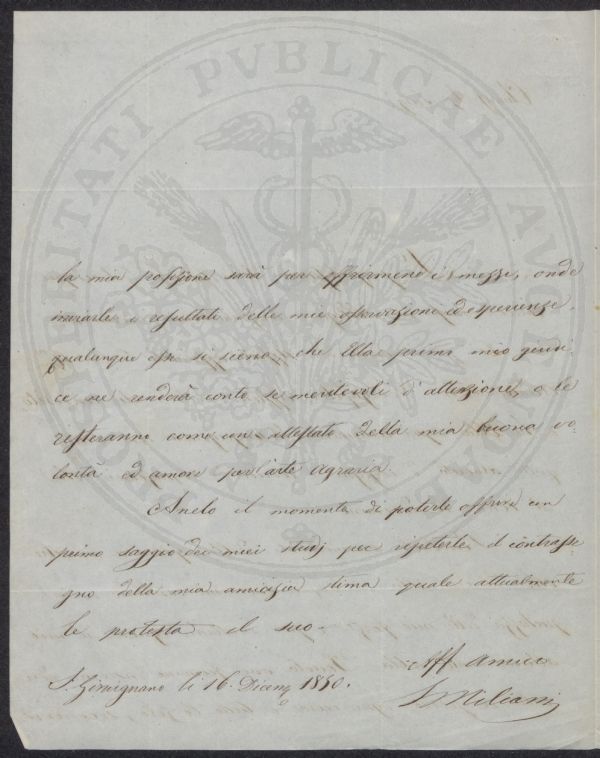 PROSPERITATI PVBLICAE AVGENDAE
la mia posizione sarà per offrirmene i mezzi, onde
inviarle i resultati delle mie osservazioni ed esperienze
qualunque essi si sieno, che Ella primo mio giudi-
ce ne renderà conto se meritevoli d'attenzione, o le
resteranno come un attestato della mia buona vo-
lontà ed amore per arte agraria.
Anelo il momento di poterle offrire un
primo saggio dei miei studj per ripeterle il contrasse-
gno della mia amicizia stima quale attualmente
le protesta il suo.
Aff amico
S. Gimignano li 16. Dicemb 1850.
Miliani